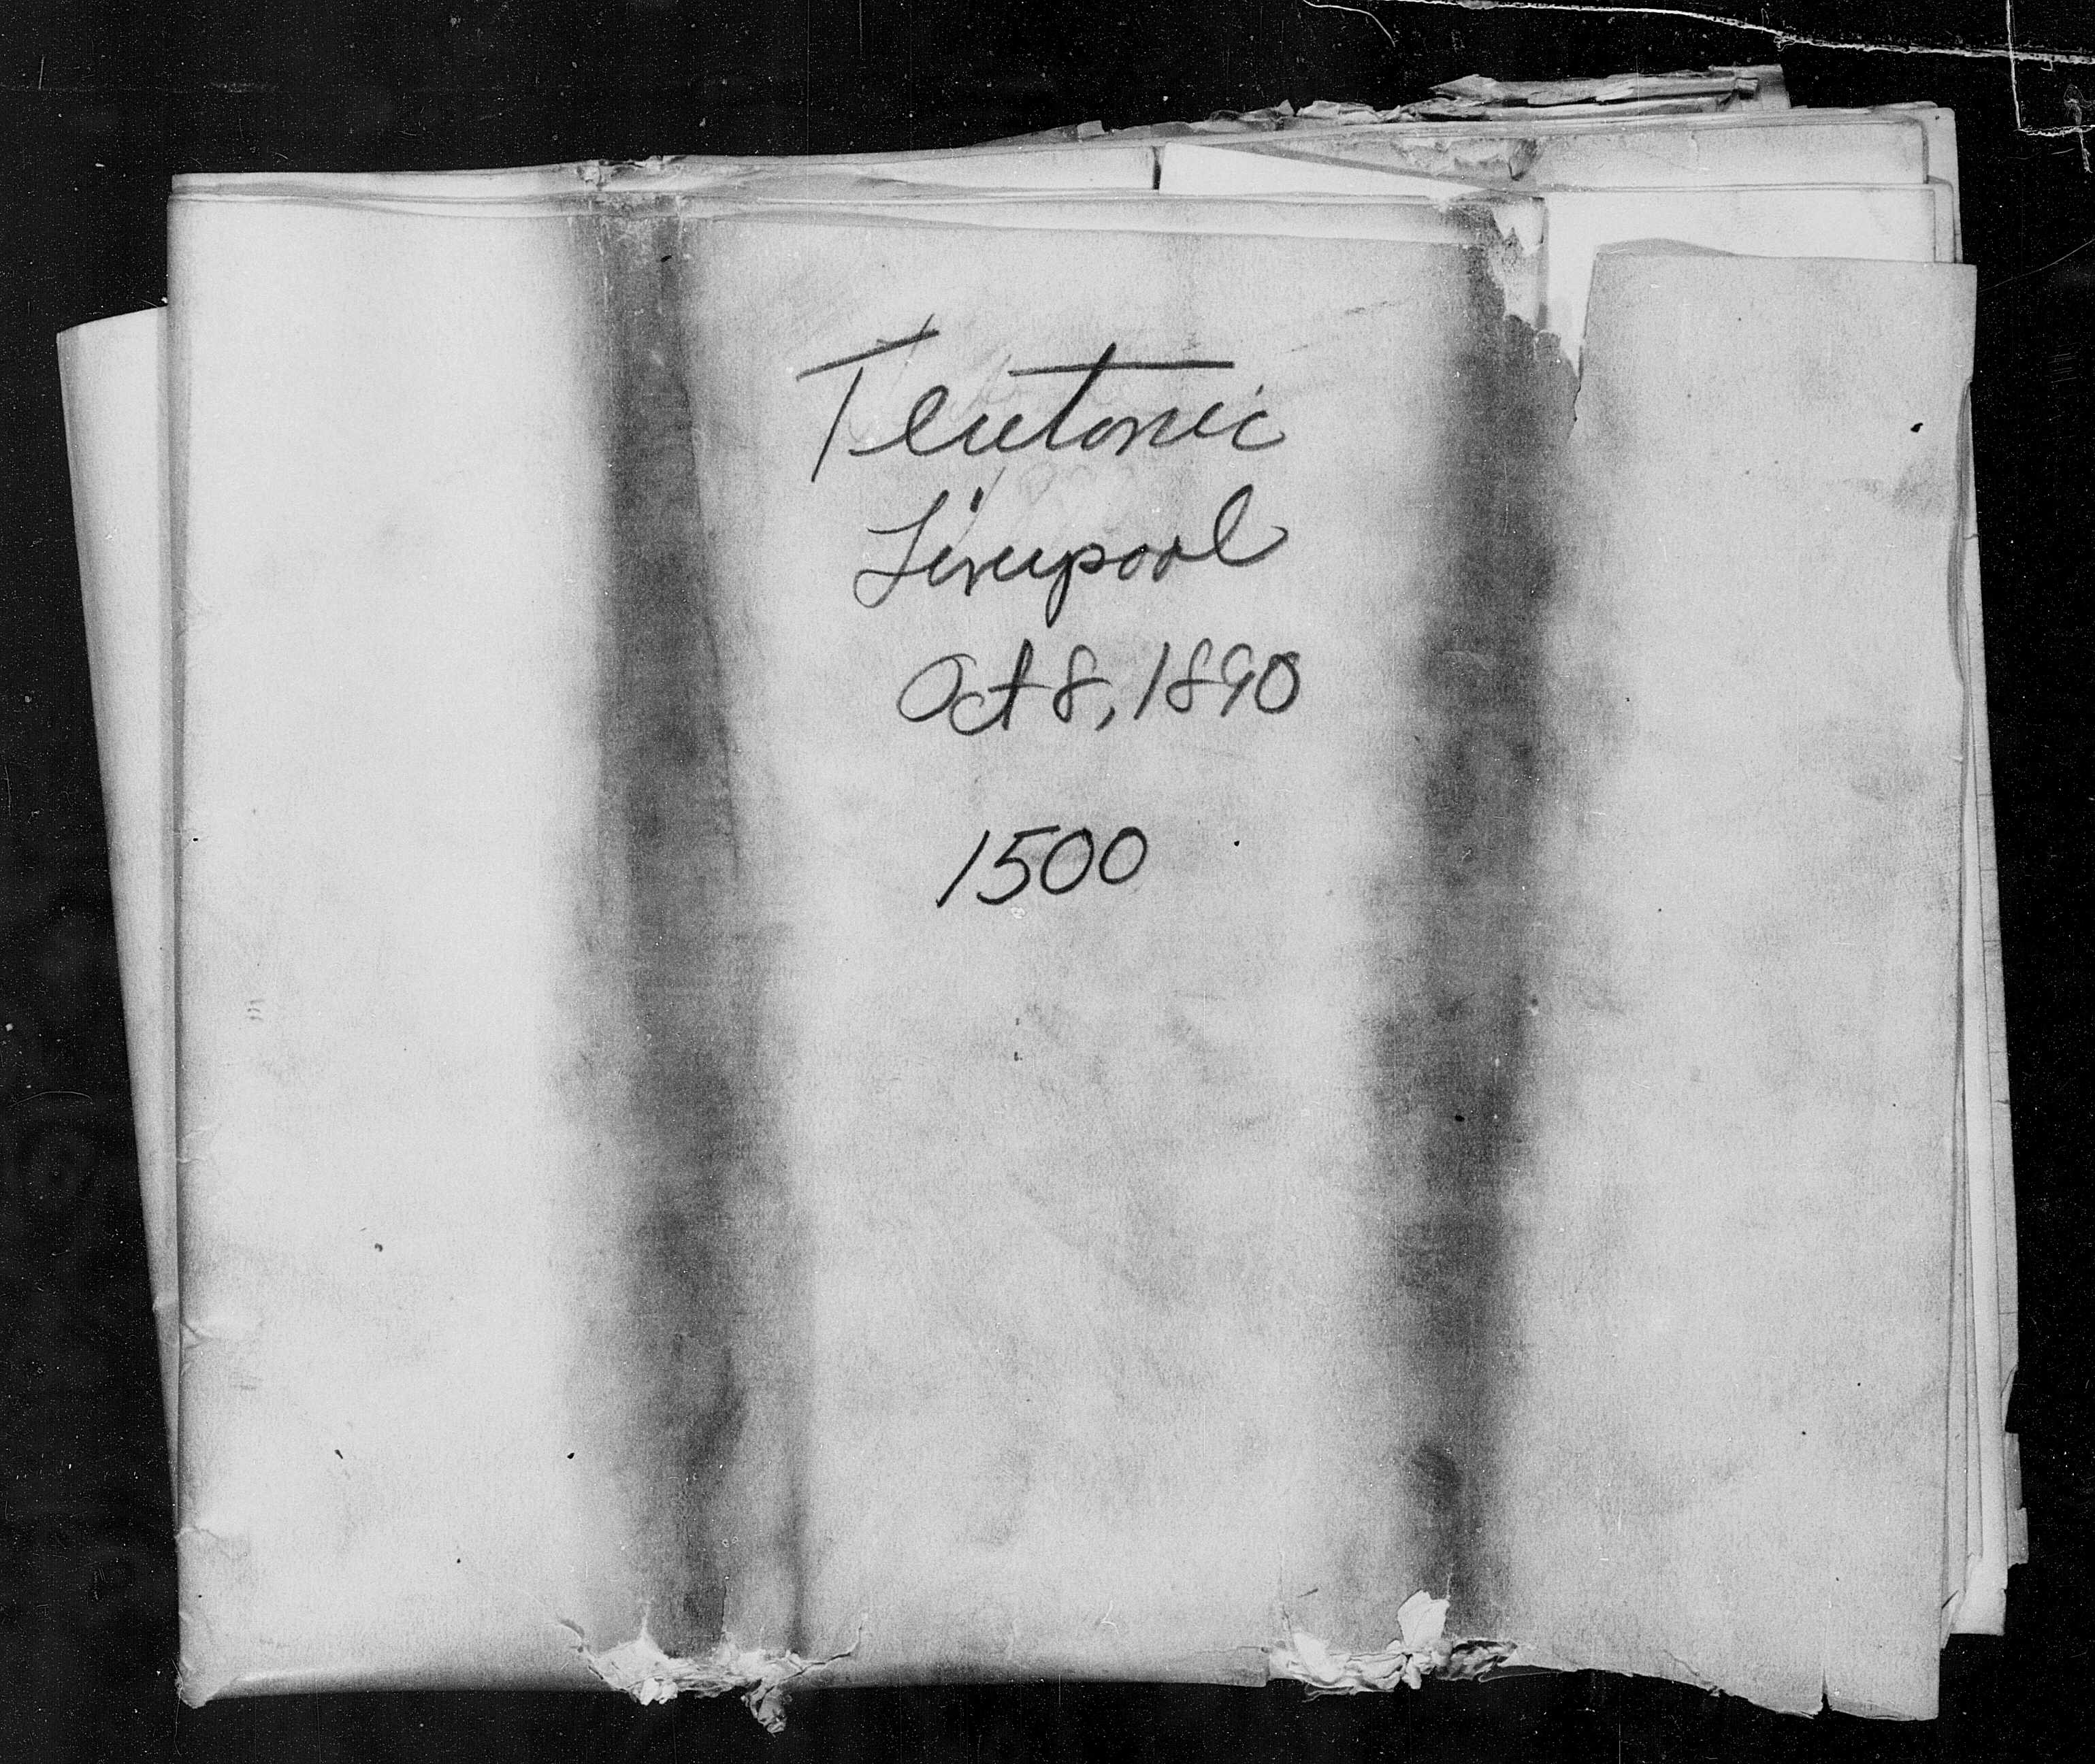 Teutonic
Liverpool
Oct 8, 1890
1500